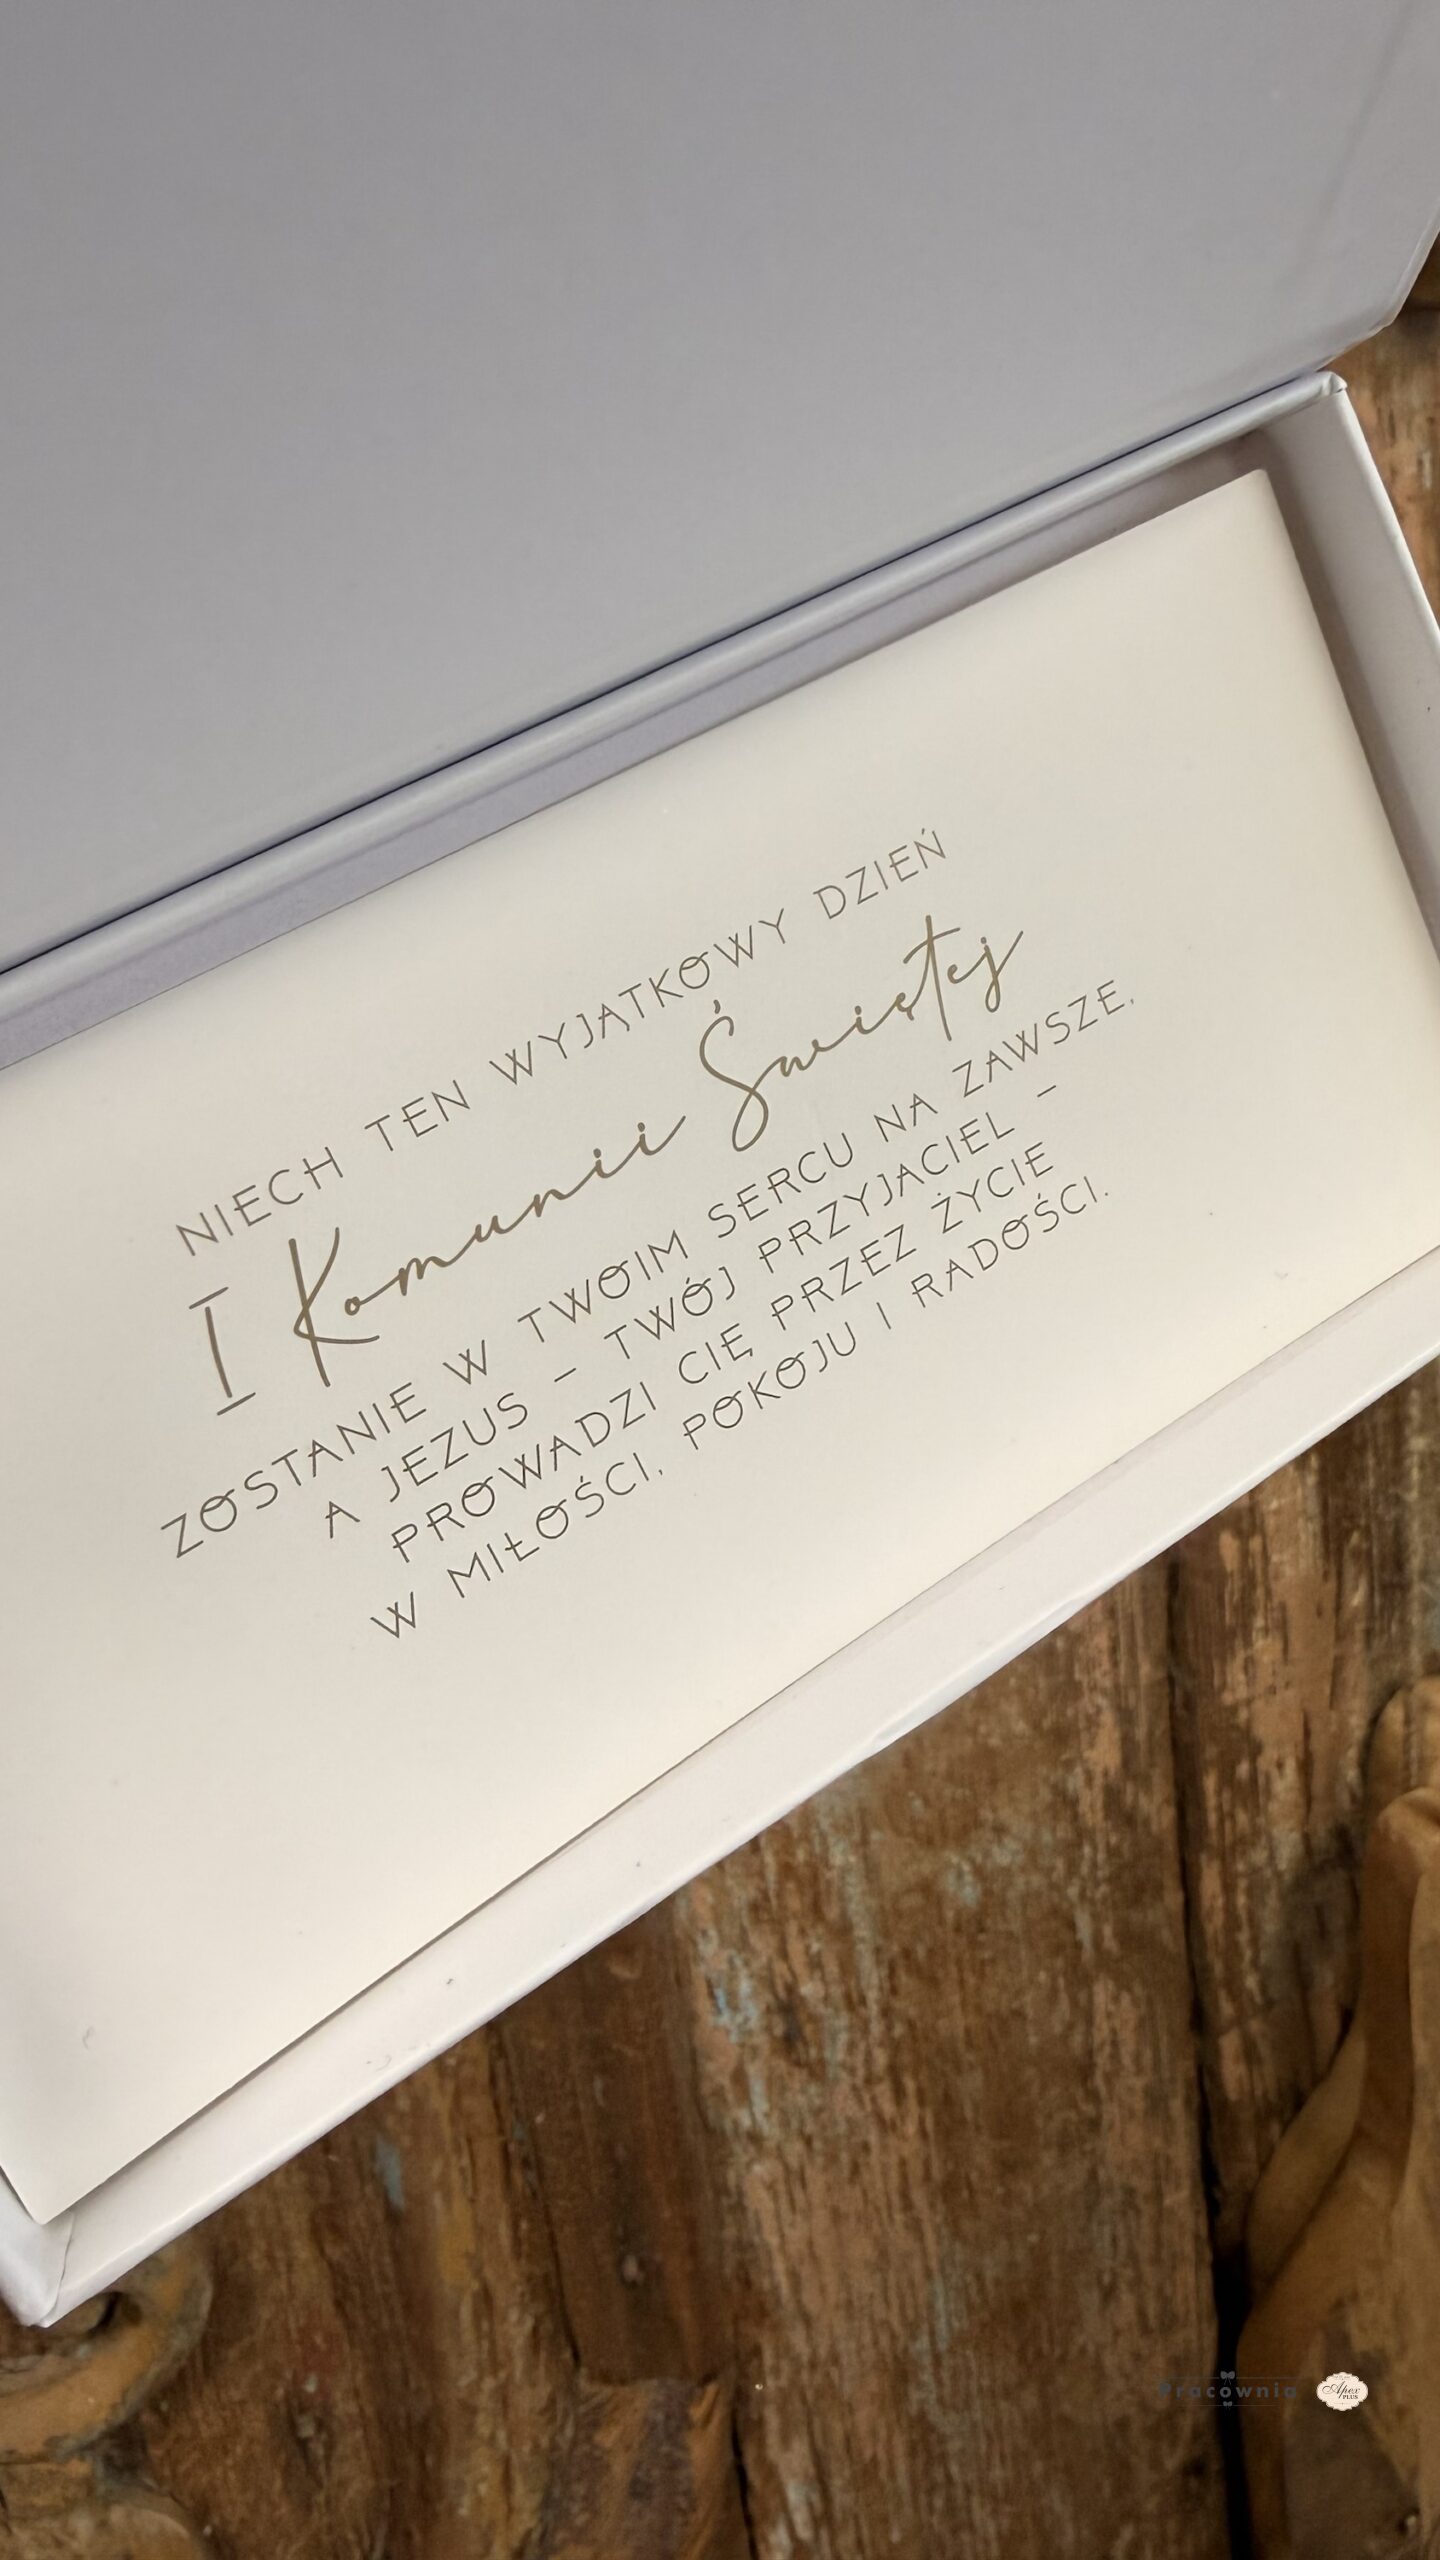 NIECH TEN WYJĄTKOWY DZIEŃ
I Komunii Świętej
ZOSTANIE W TWOIM SERCU NA ZAWSZE,
A JEZUS – TWÓJ PRZYJACIEL –
PROWADZI CIĘ PRZEZ ŻYCIE
W MIŁOŚCI, POKOJU I RADOŚCI.
Pracownia
Apex
PLUS